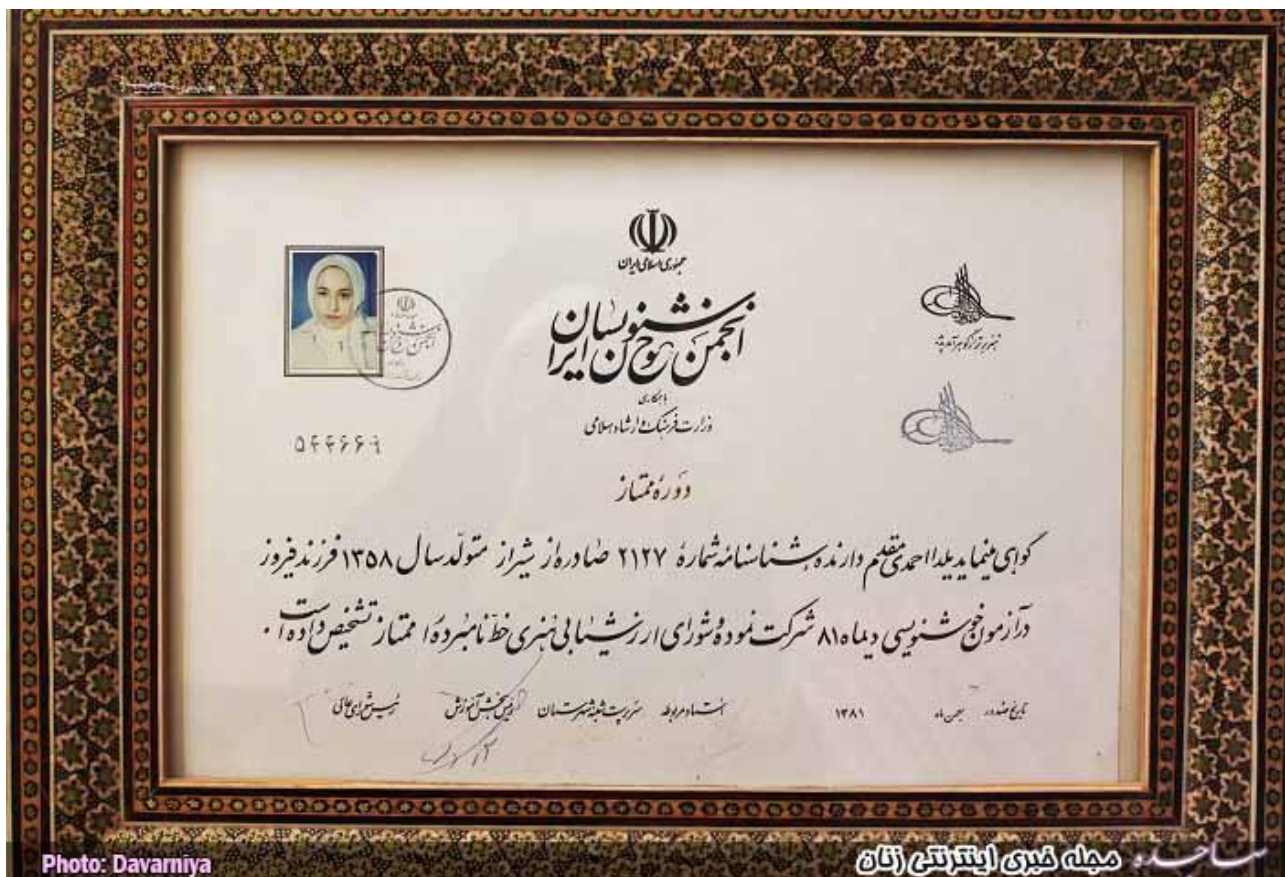 جمهوری اسلامی ایران
انجمن خوشنویسان ایران
با همکاری
وزارت فرهنگ و ارشاد اسلامی
هنر برتر از گوهر آمد پدید
۵۴۴۶۶۹
دوره ممتاز
گواهی مینماید یلدا احمدی متقلم دارنده شناسنامه شماره ۲۱۲۷ صادره از شیراز متولّد سال ۱۳۵۸ فرزند فیروز
در آزمون خوشنویسی دیماه ۸۱ شرکت نموده و شورای ارزشیابی هنری خطّ نامبرده را ممتاز تشخیص داده است.
تاریخ صدور بهمن ماه ۱۳۸۱ استاد مربوطه سرپرست شعبه شهرستان رئیس بخش آموزش رئیس شورای عالی
Photo: Davarniya
مجله خبری اینترنتی زنان